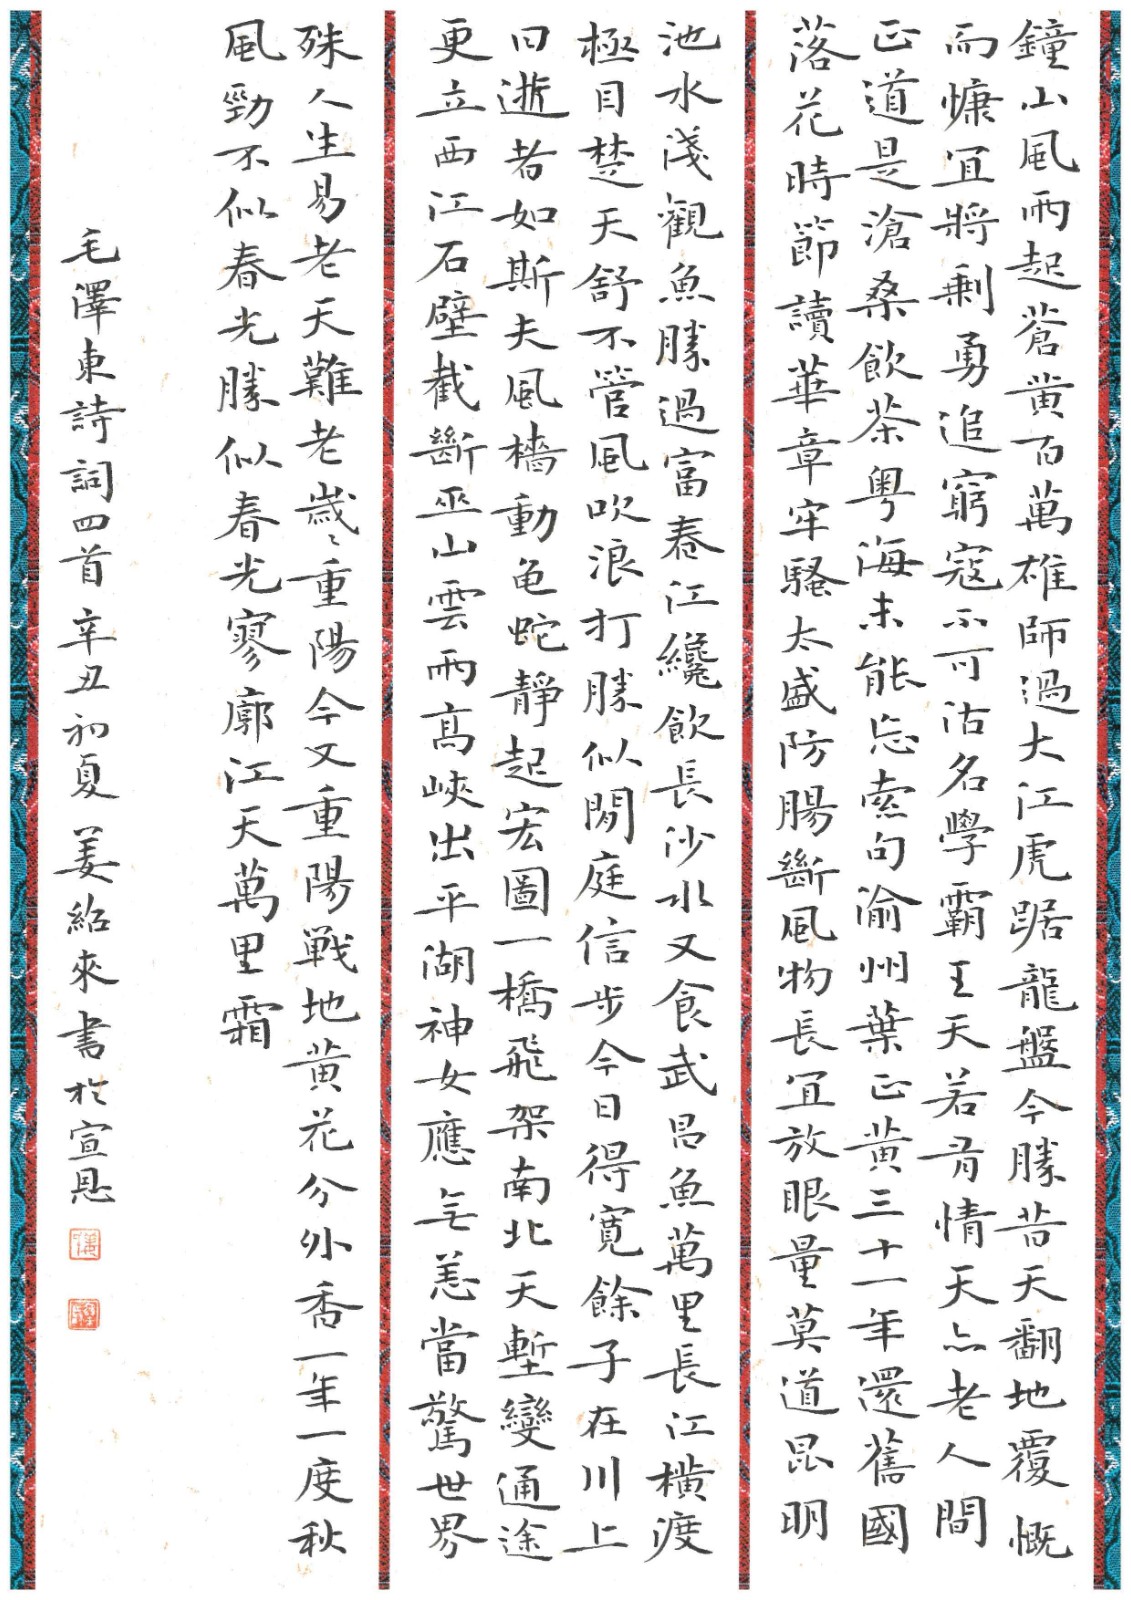 鐘山風雨起蒼黄百萬雄師過大江虎踞龍盤今勝昔天翻地覆慨
而慷宜將剩勇追窮寇不可沽名學霸王天若有情天亦老人間
正道是滄桑飲茶粤海未能忘索句渝州葉正黄三十一年還舊國
落花時節讀華章牢騷太盛防腸斷風物長宜放眼量莫道昆明
池水淺觀魚勝過富春江纔飲長沙水又食武昌魚萬里長江橫渡
極目楚天舒不管風吹浪打勝似閒庭信步今日得寬餘子在川上
曰逝者如斯夫風檣動龟蛇靜起宏圖一橋飛架南北天塹變通途
更立西江石壁截斷巫山雲雨高峽出平湖神女應無恙當驚世界
殊人生易老天難老歲〻重陽今又重陽戰地黄花分外香一年一度秋
風勁不似春光勝似春光寥廓江天萬里霜
毛澤東詩詞四首辛丑初夏姜紹來書於宣恩